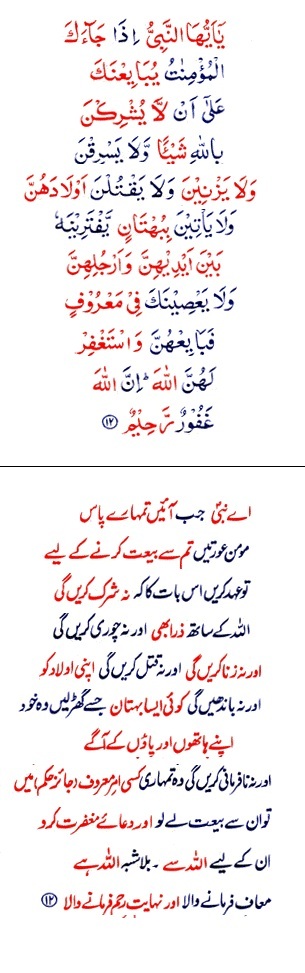 يٰۤاَيُّهَا النَّبِىُّ اِذَا جَآءَكَ
الْمُؤْمِنٰتُ يُبَايِعْنَكَ
عَلٰۤى اَنْ لَّا يُشْرِكْنَ
بِاللّٰهِ شَيْـًٔا وَّلَا يَسْرِقْنَ
وَلَا يَزْنِيْنَ وَلَا يَقْتُلْنَ اَوْلَادَهُنَّ
وَلَا يَاْتِيْنَ بِبُهْتَانٍ يَّفْتَرِيْنَهٗ
بَيْنَ اَيْدِيْهِنَّ وَاَرْجُلِهِنَّ
وَلَا يَعْصِيْنَكَ فِىْ مَعْرُوْفٍ
فَبَايِعْهُنَّ وَاسْتَغْفِرْ
لَهُنَّ اللّٰهَ ؕ اِنَّ اللّٰهَ
غَفُوْرٌ رَّحِيْمٌ ﴿۱۲﴾
اے نبیؐ جب آئیں تمہارے پاس
مومن عورتیں تم سے بیعت کرنے کے لیے
تو عہد کریں اس بات کا کہ نہ شرک کریں گی
اللہ کے ساتھ ذرا بھی اور نہ چوری کریں گی
اور نہ زنا کریں گی اور نہ قتل کریں گی اپنی اولاد کو
اور نہ باندھیں گی کوئی ایسا بہتان جسے گھڑ لیں وہ خود
اپنے ہاتھوں اور پاؤں کے آگے
اور نہ نافرمانی کریں گی وہ تمہاری کسی امرِ معروف (جائز حکم) میں
تو ان سے بیعت لے لو اور دعائے مغفرت کرو
ان کے لیے اللہ سے ۔ بلاشبہ اللہ ہے
معاف فرمانے والا اور نہایت رحم فرمانے والا ﴿۱۲﴾